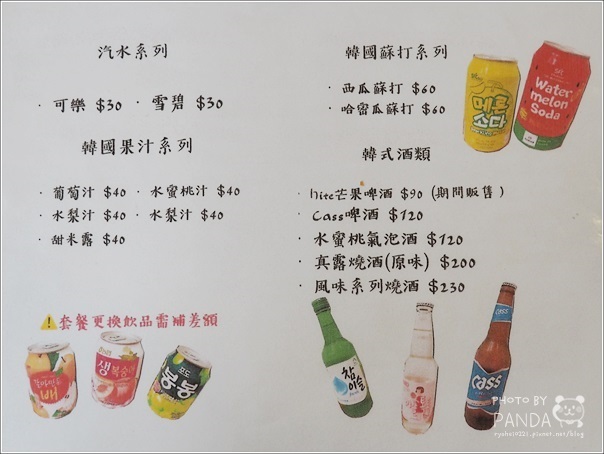 汽水系列
· 可樂 $30 · 雪碧 $30
韓國果汁系列
· 葡萄汁 $40 · 水蜜桃汁 $40
· 水梨汁 $40 · 水梨汁 $40
· 甜米露 $40
⚠套餐更換飲品需補差額
배
생
복숭아
포도
봉봉
韓國蘇打系列
· 西瓜蘇打 $60
· 哈密瓜蘇打 $60
메론
소다
Water
melon
Soda
韓式酒類
· hite芒果啤酒 $90 (期間販售)
· Cass啤酒 $120
· 水蜜桃氣泡酒 $120
· 真露燒酒(原味) $200
· 風味系列燒酒 $230
참
이슬
cass
Cass
PHOTO BY
PANDA
ryoko10221.pixnet.net/blog